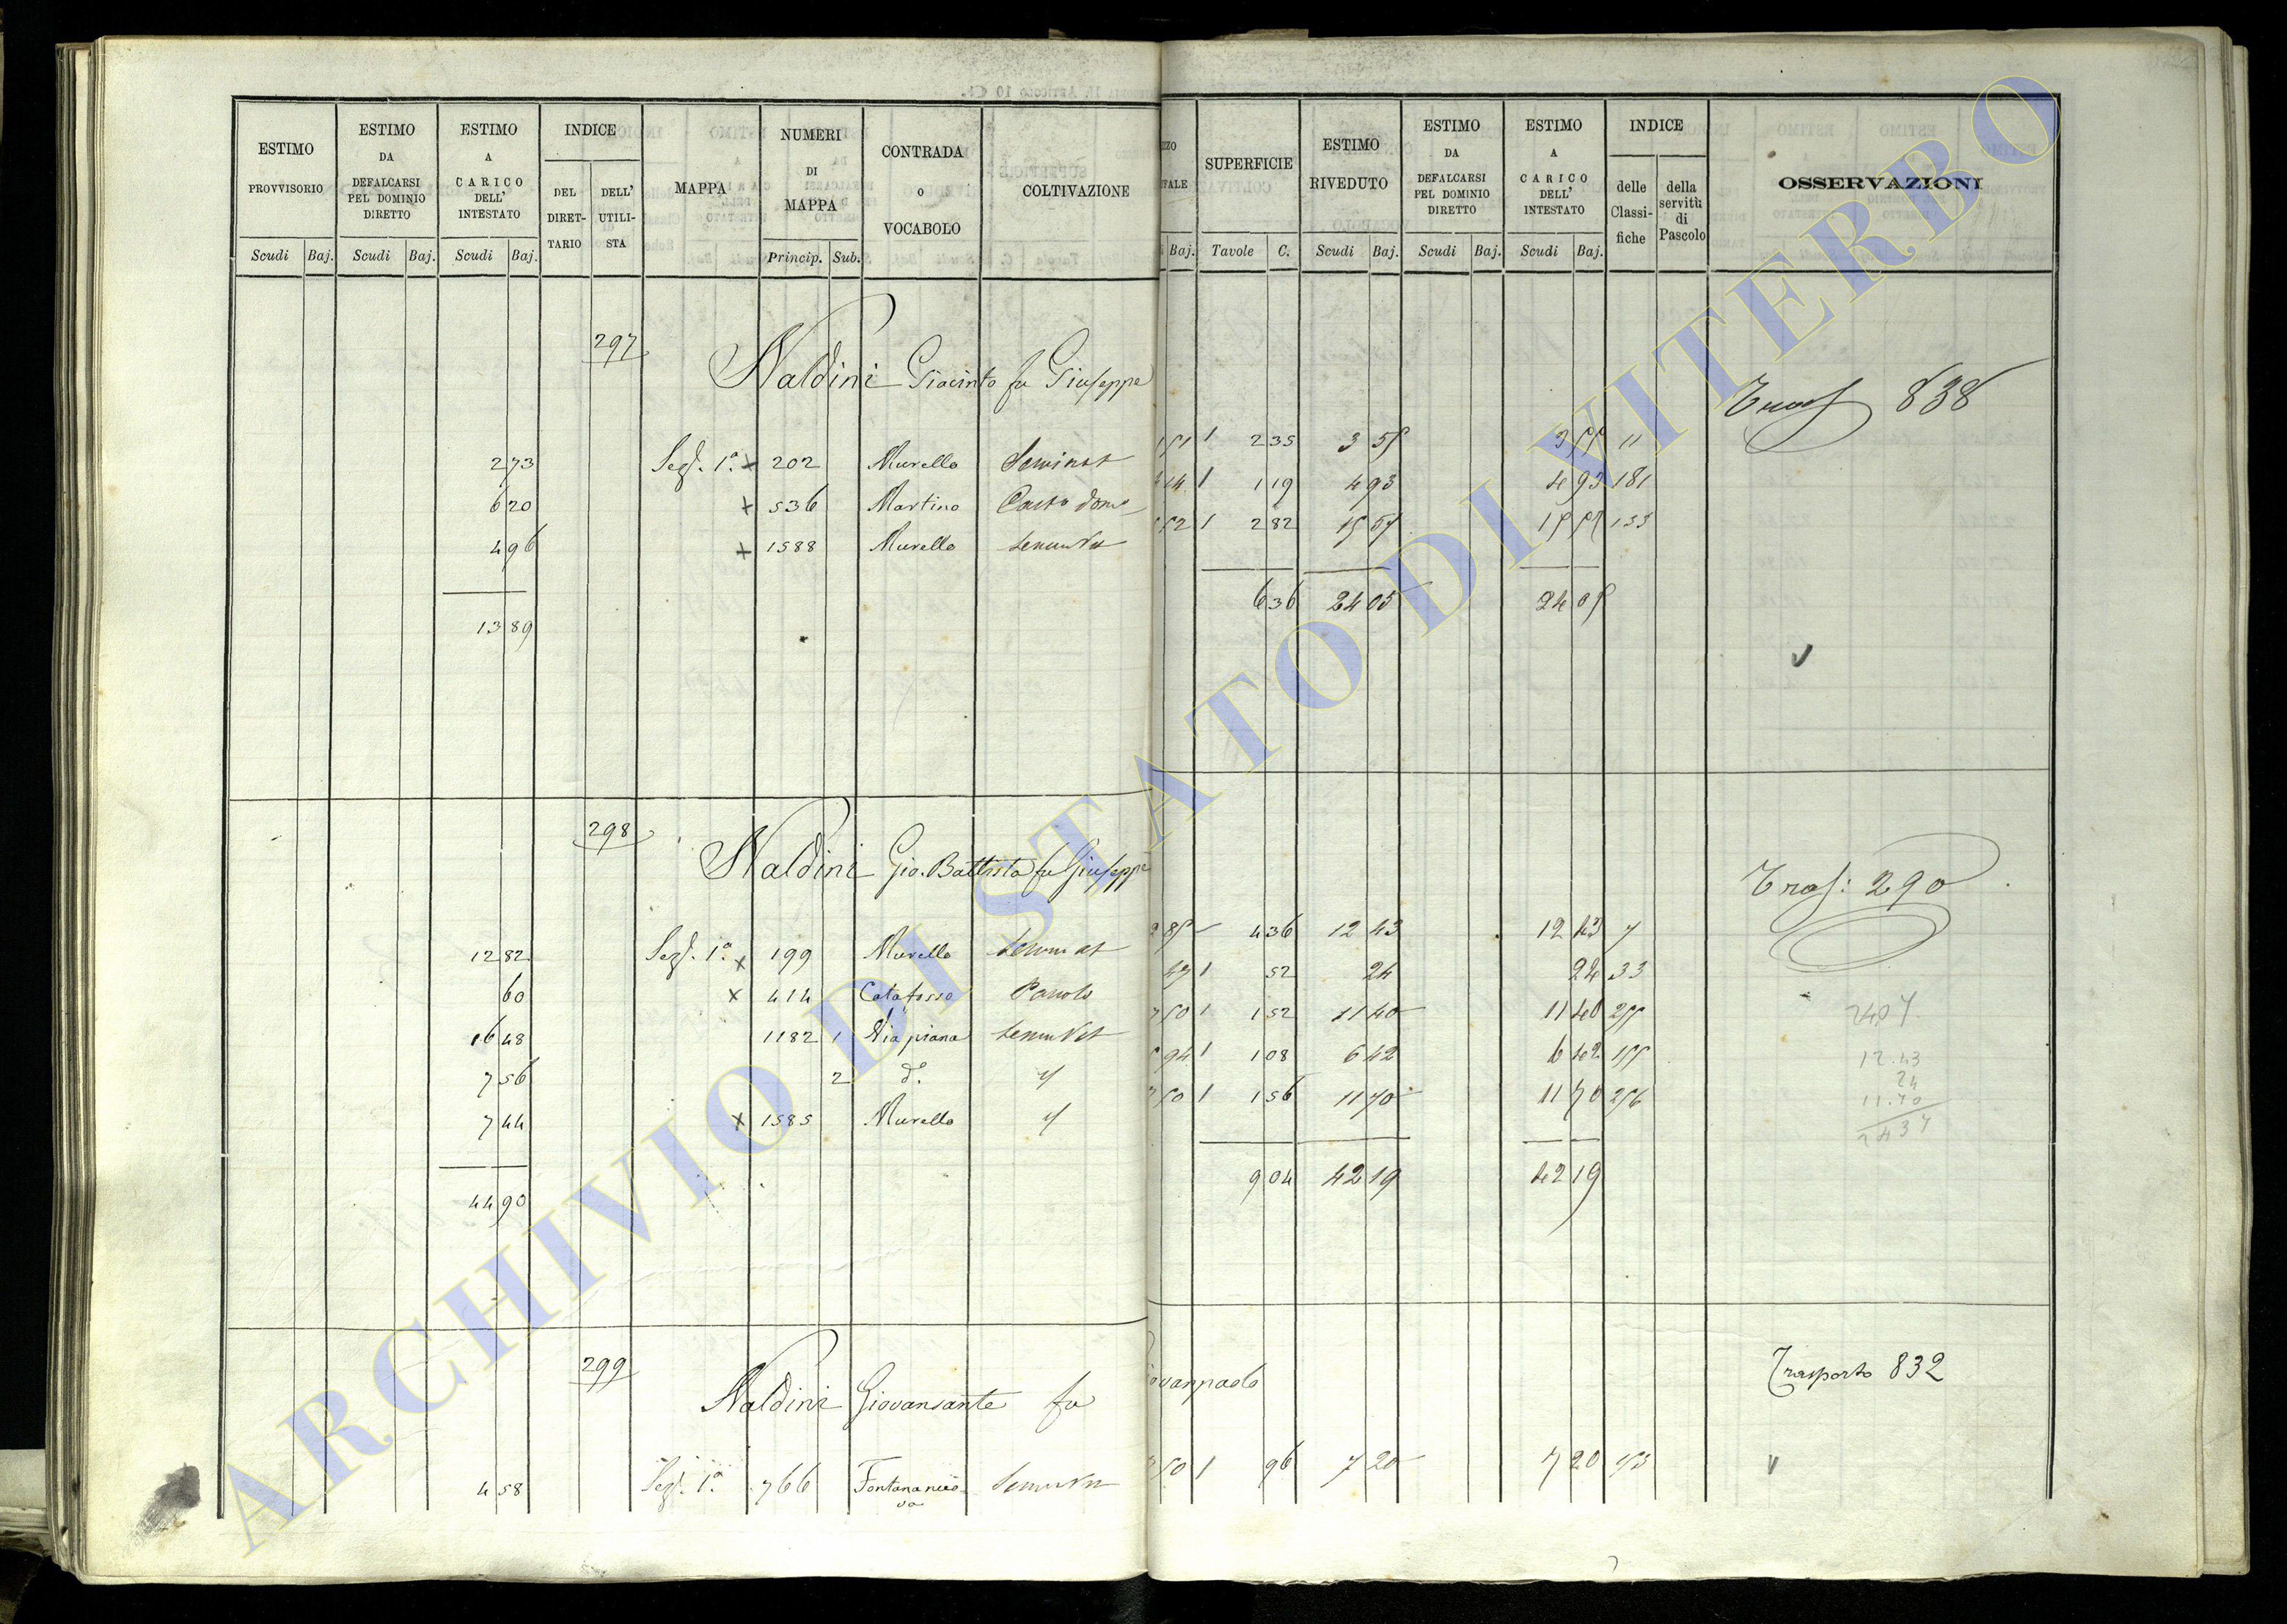 ESTIMO PROVVISORIO | ESTIMO DA DEFALCARSI PEL DOMINIO DIRETTO | ESTIMO A CARICO DELL' INTESTATO | INDICE DEL DIRETTARIO | DELL' UTILISTA | MAPPA | NUMERI DI MAPPA | CONTRADA O VOCABOLO | COLTIVAZIONE
Scudi Baj. | Scudi Baj. | Scudi Baj. | Princip. Sub.
297
Naldini Giacinto fu Giuseppe
2 73 Sez. 1ª + 202 Murello Seminat
6 20 + 536 Martino
4 96 + 1588 Murello
13 89
298
Naldini Gio. Battista fu Giuseppe
12 82 Sez. 1ª x 199 Murello Seminat
60 x 414 Catafosso
16 48 1182 1 Via piana
7 56 2 d.º "
7 44 x 1585 Murello "
44 90
299
Naldini Giovansante fu
4 58 Sez. 1ª 766
SUPERFICIE | ESTIMO RIVEDUTO | ESTIMO DA DEFALCARSI PEL DOMINIO DIRETTO | ESTIMO A CARICO DELL' INTESTATO | INDICE delle Classifiche | della servitù di Pascolo | OSSERVAZIONI
Baj. | Tavole C. | Scudi Baj. | Scudi Baj. | Scudi Baj.
Trasp 838
2 35 3 55 3 55 11
1 19 4 93 4 93 181
2 82 15 57 15 57 133
6 36 24 05 24 05
Trasp: 290
4 36 12 43 12 43 7
52 24 24 33
1 52 11 40 11 40 255
1 08 6 42 6 42 155
1 56 11 70 11 70 256
9 04 42 19 42 19
2407
12.43
24
11.70
2437
ovanpaolo
Trasporto 832
50 1 96 7 20 7 20 153
ARCHIVIO DI STATO DI VITERBO